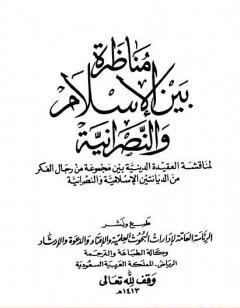 مُناظرة
بَين الإسْلام
وَالنّصْرانيّة
لمناقشة العقيدة الدينية بين مجموعة من رجال الفكر
من الديانتين الإسلامية والنصرانية
طبع ونشر
الرئاسة العامة لإدارات البحوث العلمية والإفتاء والدعوة والإرشاد
وكالة الطباعة والترجمة
الرياض - المملكة العربية السعودية
وقف لله تعالى
١٤١٣هـ